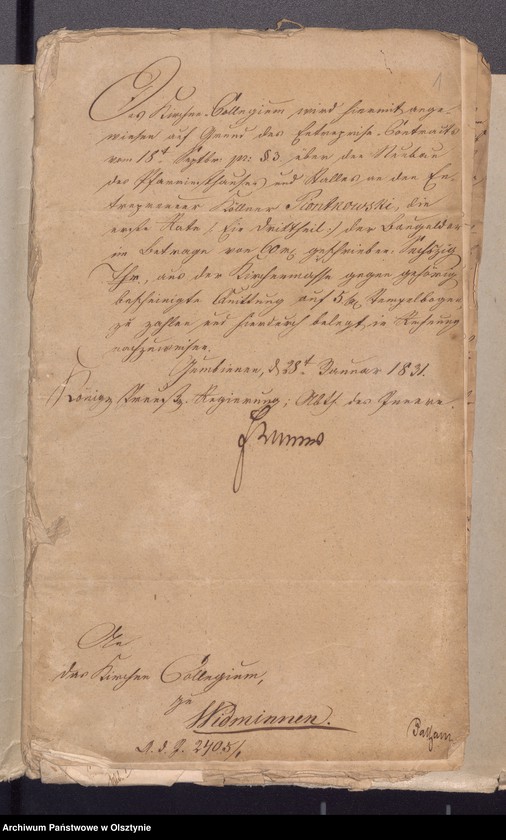 1
Das Kirchen-Collegium wird hiermit ange-
wiesen auf Grund des Entreprise-Contracts
vom 18t Septbr pr: § 3. über den Neubau
des Pfarrwitthauses und Stalles an den En-
trepreneur Köllner Piontkowski, die
erste Rate /: Ein Drittheil :/ der Baugelder
im Betrage von 60 rt geschrieben Sechszig
Thlr, aus der Kirchenkasse gegen gehörig
bescheinigte Quittung auf 5 Stempelbogen
zu zahlen und hierdurch belegt in Rechnung
nachzuweisen.
Gumbinnen, d. 28t Januar 1831.
Königl Preuß. Regierung; Abth. des Innern.
An
das Kirchen Collegium,
zu
Widminnen.
A. d. J. 2405/1
Archiwum Państwowe w Olsztynie